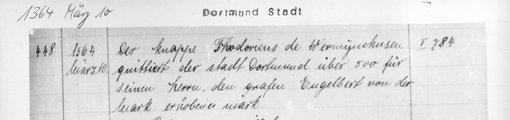 1364 März 10
Dortmund Stadt
448 1364 Der Knappe Thodoricus de Wermynchusen I 784
März 10. quittiert der Stadt Dortmund über 500 für
seinen Herrn, den Grafen Engelbert von der
Mark erhobene Mark.